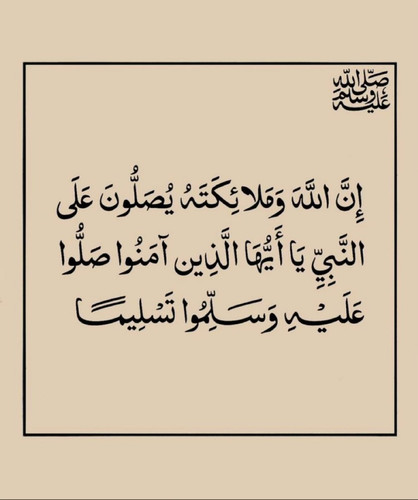 صلى الله عليه وسلم
إِنَّ اللَّهَ وَمَلَائِكَتَهُ يُصَلُّونَ عَلَى
النَّبِيِّ يَا أَيُّهَا الَّذِين آمَنُوا صَلُّوا
عَلَيْهِ وَسَلِّمُوا تَسْلِيمًا